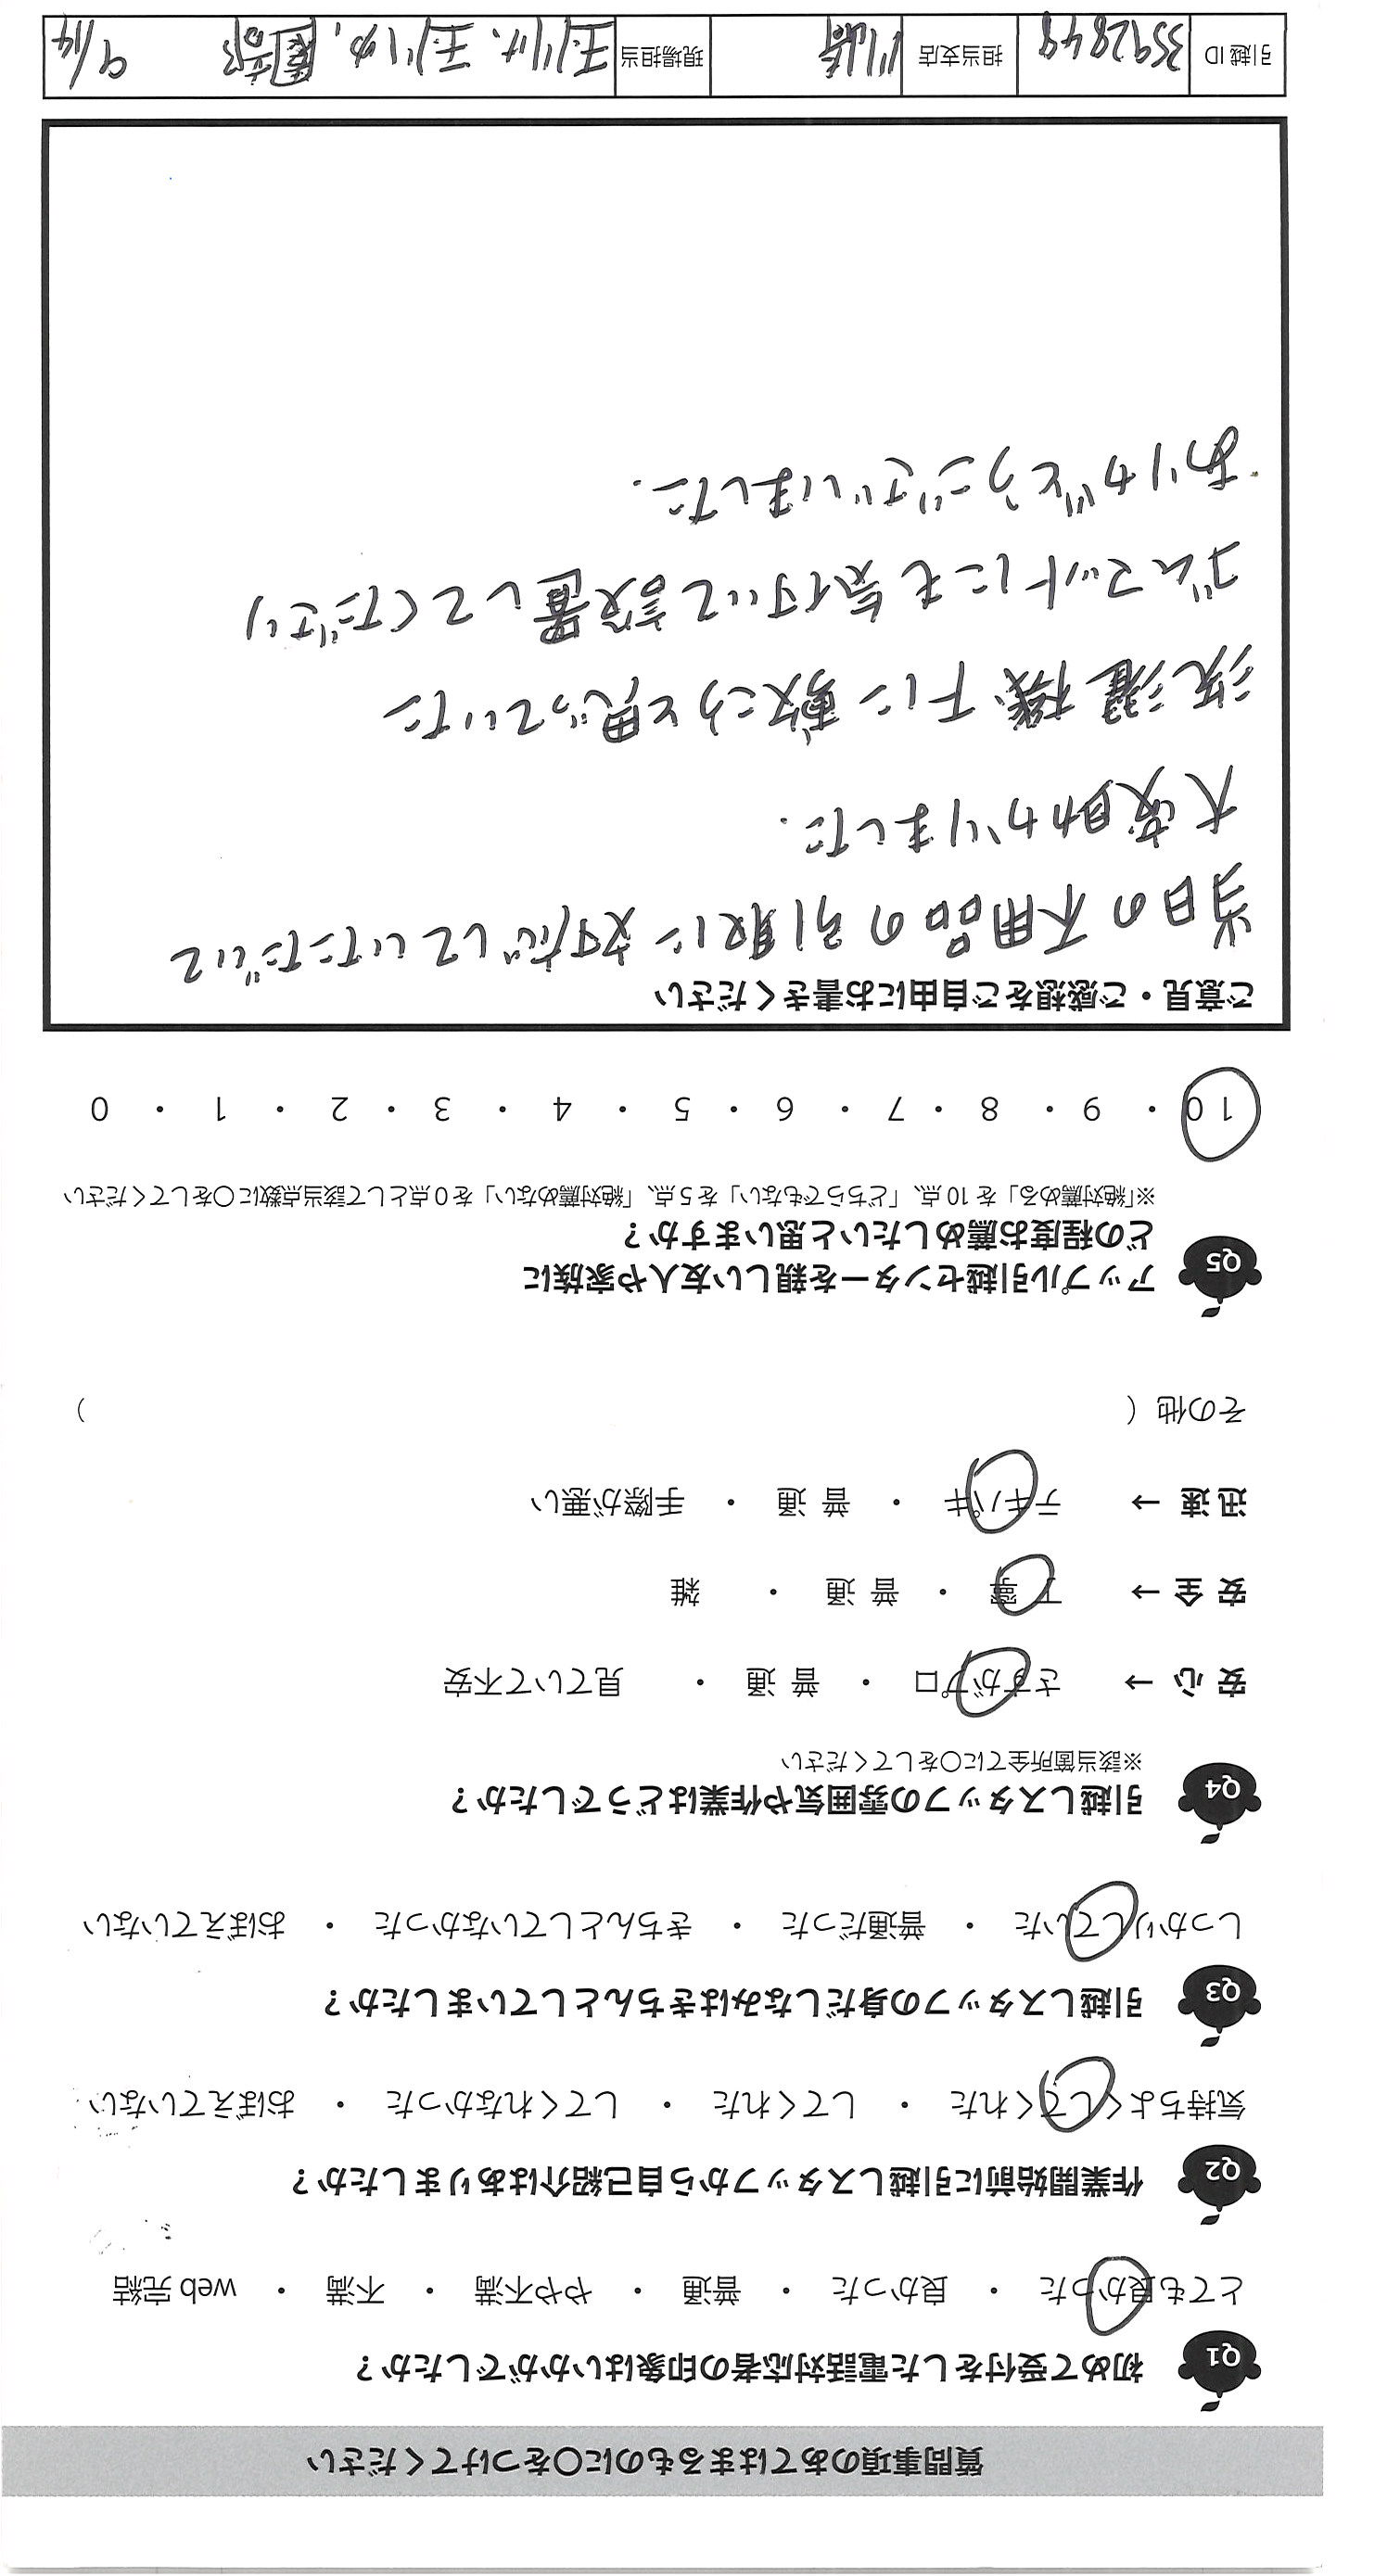 質問事項のあてはまるものに○をつけてください
Q1 初めて受付をした電話対応者の印象はいかがでしたか？
とても良かった ・ 良かった ・ 普通 ・ やや不満 ・ 不満 ・ web 完結
Q2 作業開始前に引越しスタッフから自己紹介はありましたか？
気持ちよくしてくれた ・ してくれた ・ してくれなかった ・ おぼえていない
Q3 引越しスタッフの身だしなみはきちんとしていましたか？
しっかりしていた ・ 普通だった ・ きちんとしていなかった ・ おぼえていない
Q4 引越しスタッフの雰囲気や作業はどうでしたか？
※該当箇所全てに○をしてください
安 心 → さすがプロ ・ 普 通 ・ 見ていて不安
安 全 → 丁 寧 ・ 普 通 ・ 雑
迅 速 → テキパキ ・ 普 通 ・ 手際が悪い
その他（ ）
Q5 アップル引越センターを親しい友人や家族に
どの程度お薦めしたいと思いますか？
※「絶対薦める」を 10 点、「どちらでもない」を 5 点、「絶対薦めない」を 0 点として該当点数に○をしてください
10 ・ 9 ・ 8 ・ 7 ・ 6 ・ 5 ・ 4 ・ 3 ・ 2 ・ 1 ・ 0
ご意見・ご感想をご自由にお書きください
当日の不用品の引取に対応していただいて
大変助かりました.
洗濯機下に敷こうと思っていた
ゴムマットにも気付いて設置してくださり
ありがとうございました.
引越 ID 3592848 担当支店 川崎 現場担当 9/14